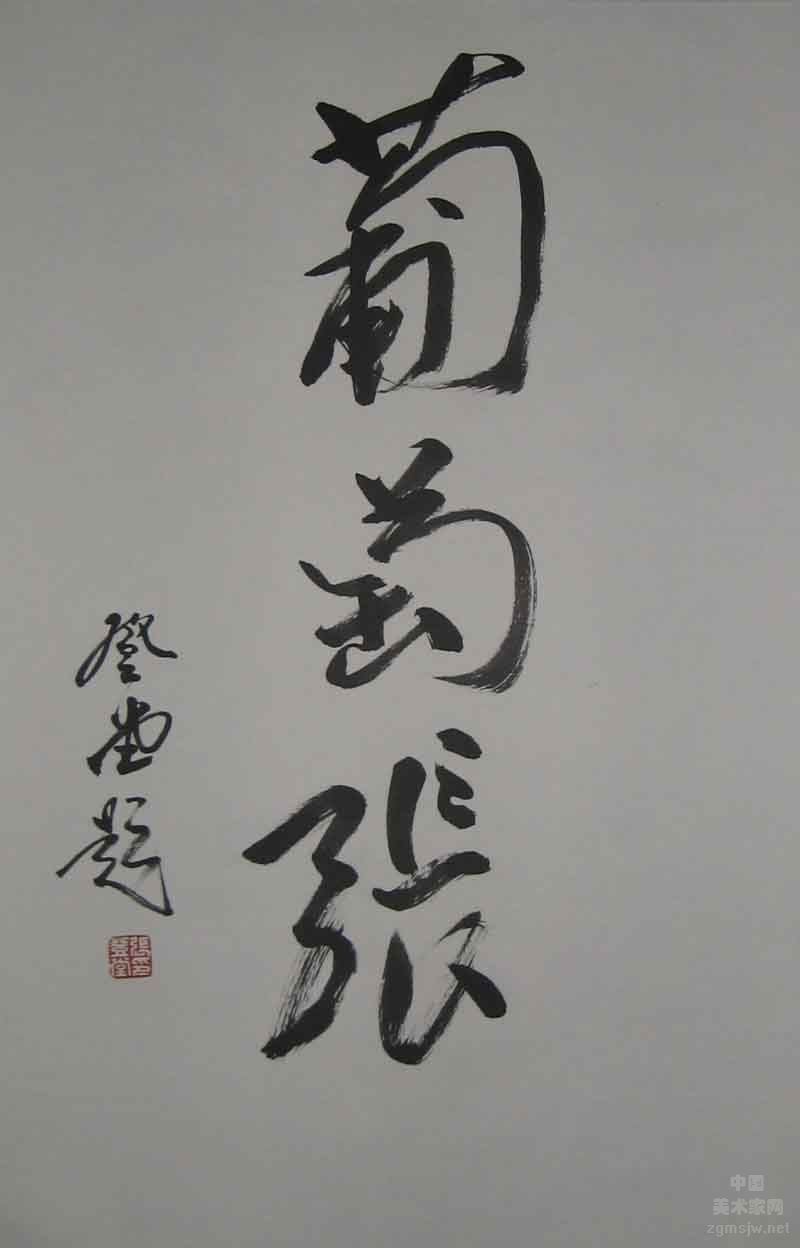 葡萄張
登堂題
張登堂印
中国
美术家网
zgmsjw.net